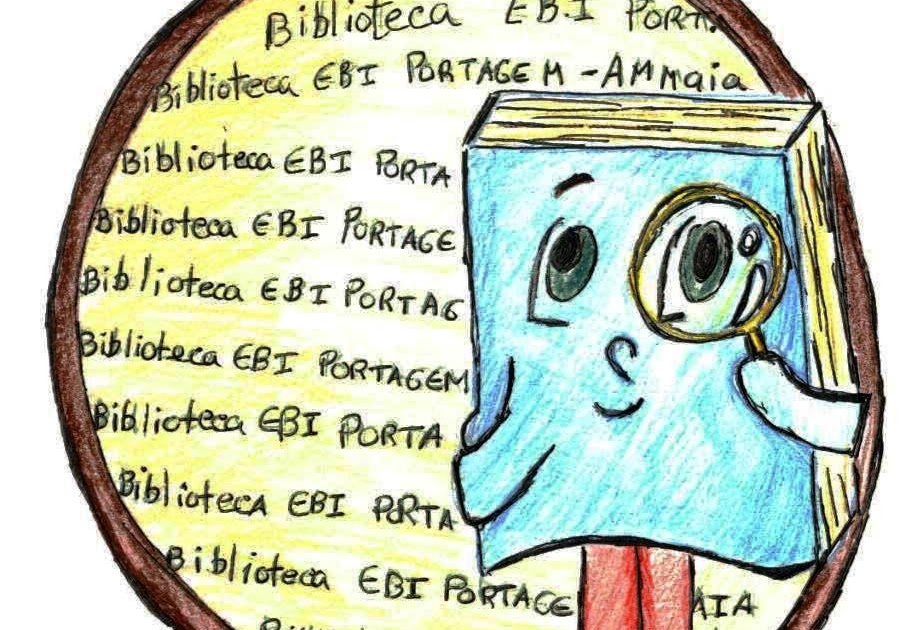 Biblioteca EBI PORT
Biblioteca EBI PORTAGEM -AMMaia
Biblioteca EBI PORTA
Biblioteca EBI PORTAGE
Biblioteca EBI PORTAG
Biblioteca EBI PORTAGEM
Biblioteca EBI PORTA
Biblioteca EBI PORTA
Biblioteca EBI PORTAGE AIA